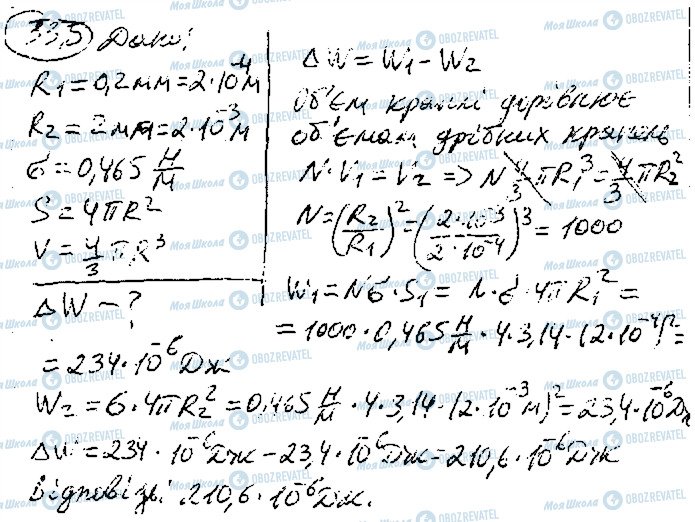 33,5 Дано:
R₁ = 0,2 мм = 2·10⁻⁴ м
R₂ = 2 мм = 2·10⁻³ м
σ = 0,465 Н/м
S = 4πR²
V = 4/3 πR³
ΔW – ?
ΔW = W₁ – W₂
Об'єм краплі дорівнює
об'ємам дрібних крапель
N·V₁ = V₂ => N 4/3 πR₁³ = 4/3 πR₂²
N = (R₂/R₁)² = (2·10⁻³/2·10⁻⁴)³ = 1000
W₁ = Nσ·S₁ = N·σ·4πR₁² =
= 1000·0,465 Н/м·4·3,14·(2·10⁻⁴)² =
= 234·10⁻⁶ Дж
W₂ = σ·4πR₂² = 0,465 Н/м·4·3,14·(2·10⁻³ м)² = 23,4·10⁻⁶ Дж
ΔW = 234·10⁻⁶ Дж – 23,4·10⁻⁶ Дж = 210,6·10⁻⁶ Дж
Відповідь: 210,6·10⁻⁶ Дж.